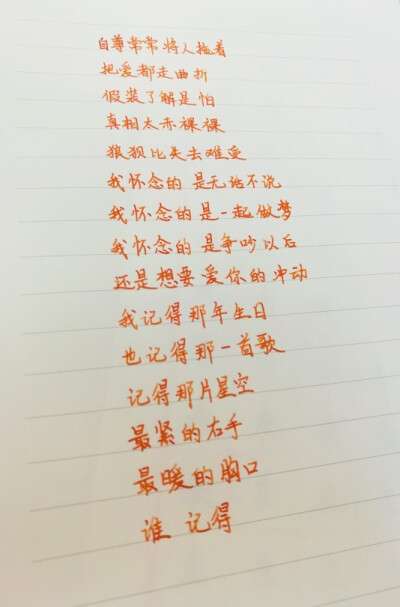 自尊常常将人拖着
把爱都走曲折
假装了解是怕
真相太赤裸裸
狼狈比失去难受
我怀念的 是无话不说
我怀念的是一起做梦
我怀念的 是争吵以后
还是想要爱你的冲动
我记得那年生日
也记得那一首歌
记得那片星空
最紧的右手
最暖的胸口
谁 记得